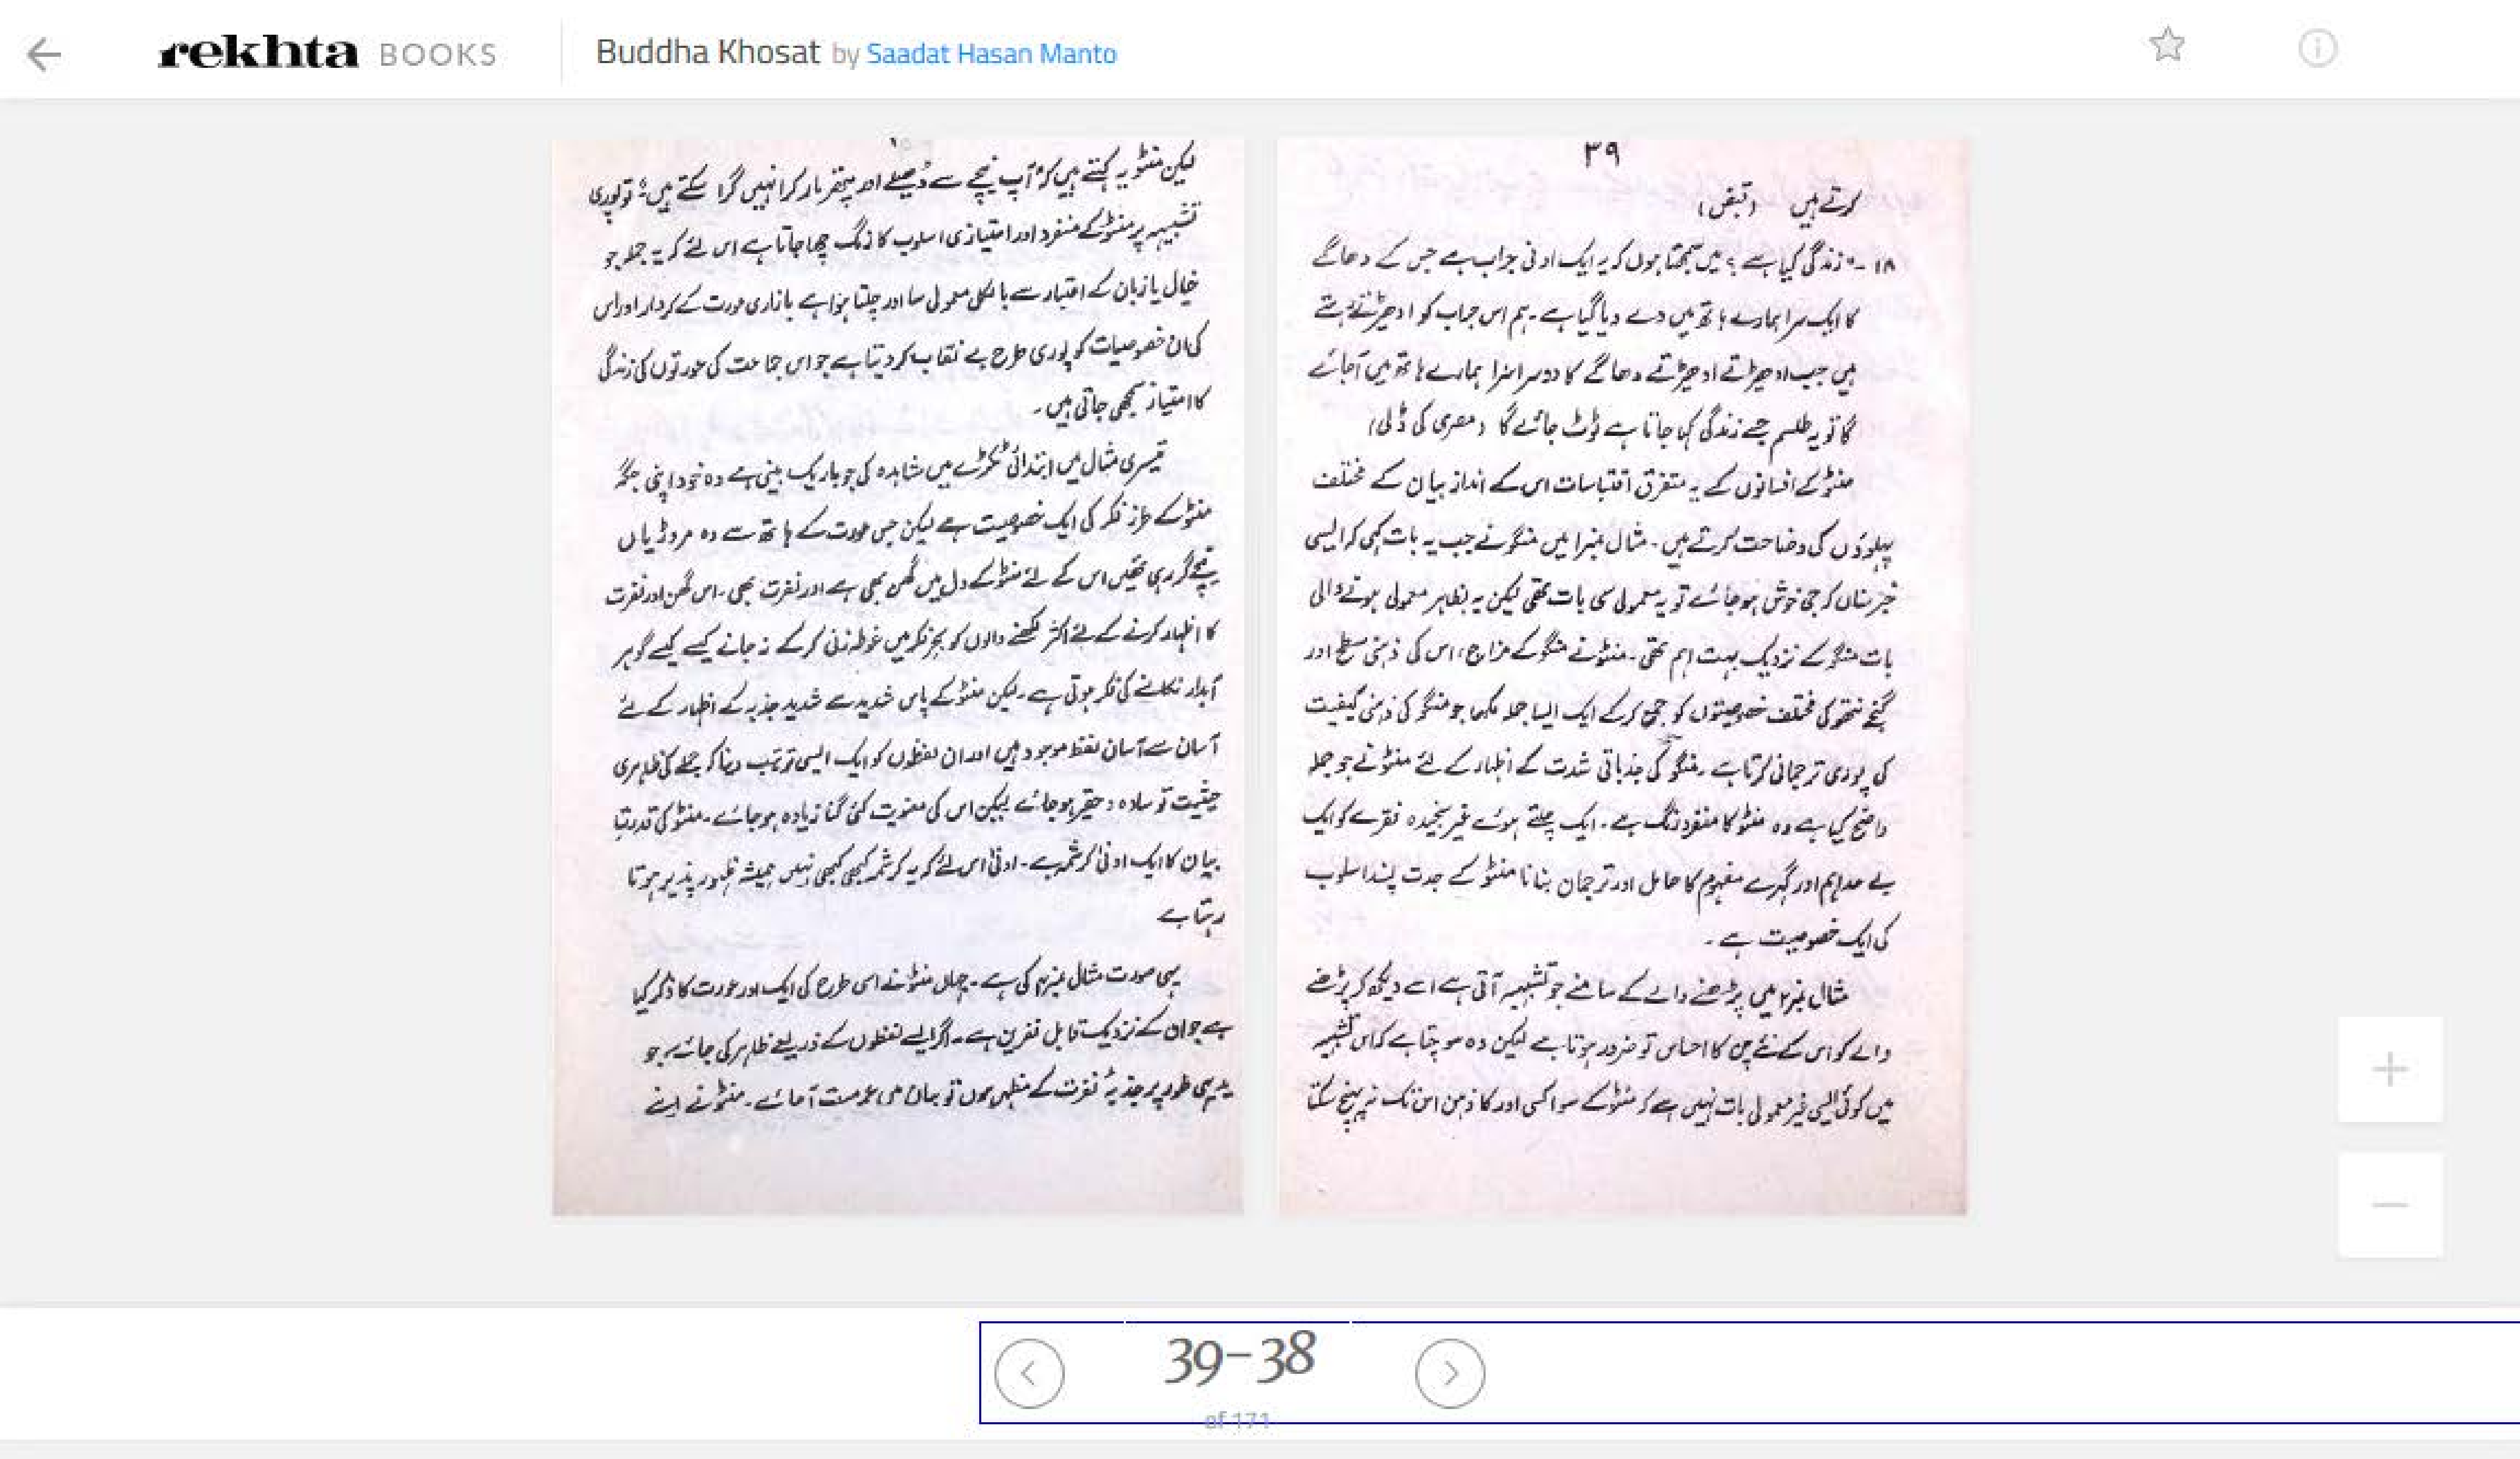 rekhta BOOKS
Buddha Khosat by Saadat Hasan Manto
۳۹
کرتے ہیں (قبض)
۱۸ - "زندگی کیا ہے ؟ میں سمجھتا ہوں کہ یہ ایک اونی جراب ہے جس کے دھاگے
کا ایک سرا ہمارے ہاتھ میں دے دیا گیا ہے۔ ہم اس جراب کو ادھیڑتے رہتے
ہیں جب ادھیڑتے ادھیڑتے دھاگے کا دوسرا سرا ہمارے ہاتھ میں آجائے
گا تو یہ طلسم جسے زندگی کہا جاتا ہے ٹوٹ جائے گا (مصری کی ڈلی)
منٹو کے افسانوں کے یہ متفرق اقتباسات اس کے انداز بیان کے مختلف
پہلوؤں کی وضاحت کرتے ہیں۔ مثال نمبرا میں منگو نے جب یہ بات کہی کہ ایسی
خبر سناں کہ جی خوش ہو جائے تو یہ معمولی سی بات تھی لیکن یہ بظاہر معمولی ہونے والی
بات منگو کے نزدیک بہت اہم تھی۔ منٹو نے منگو کے مزاج، اس کی ذہنی سطح اور
گنجے نتھو کی مختلف خصوصیتوں کو جمع کرکے ایک ایسا جملہ لکھا جو منگو کی ذہنی کیفیت
کی پوری ترجمانی کرتا ہے۔ منگو کی جذباتی شدت کے اظہار کے لئے منٹو نے جو جملہ
واضح کیا ہے وہ منٹو کا منفرد رنگ ہے۔ ایک چلتے ہوئے غیر سنجیدہ فقرے کو ایک
بے حد اہم اور گہرے مفہوم کا حامل اور ترجمان بنانا منٹو کے جدت پسند اسلوب
کی ایک خصوصیت ہے۔
مثال نمبر۲ میں پڑھنے والے کے سامنے جو تشبیہہ آتی ہے اسے دیکھ کر پڑھنے
والے کو اس کے نئے پن کا احساس تو ضرور ہوتا ہے لیکن وہ سوچتا ہے کہ اس تشبیہہ
میں کوئی ایسی غیر معمولی بات نہیں ہے کہ منٹو کے سوا کسی اور کا ذہن اس تک نہ پہنچ سکتا
لیکن منٹو یہ کہتے ہیں کہ "آپ نیچے سے ڈھیلے اور پتھر مار کر انہیں گرا سکتے ہیں" تو پوری
تشبیہہ پر منٹو کے منفرد اور امتیازی اسلوب کا رنگ چھا جاتا ہے اس لئے کہ یہ جملہ جو
خیال یا زبان کے اعتبار سے بالکل معمولی سا اور چلتا ہوا ہے بازاری عورت کے کردار اور اس
کی ان خصوصیات کو پوری طرح بے نقاب کر دیتا ہے جو اس جماعت کی عورتوں کی زندگی
کا امتیاز سمجھی جاتی ہیں۔
تیسری مثال میں ابتدائی ٹکڑے میں مشاہدہ کی جو باریک بینی ہے وہ خود اپنی جگہ
منٹو کے طرز فکر کی ایک خصوصیت ہے لیکن جس عورت کے ہاتھ سے وہ مروڑیاں
نیچے گر رہی تھیں اس کے لئے منٹو کے دل میں گھن بھی ہے اور نفرت بھی۔ اس گھن اور نفرت
کا اظہار کرنے کے لئے اکثر لکھنے والوں کو بحر فکر میں غوطہ زنی کرکے نہ جانے کیسے کیسے گوہر
آبدار نکالنے کی فکر ہوتی ہے۔ لیکن منٹو کے پاس شدید سے شدید جذبہ کے اظہار کے لئے
آسان سے آسان لفظ موجود ہیں اور ان لفظوں کو ایک ایسی ترتیب دینا کہ جملے کی ظاہری
حیثیت تو سادہ و حقیر ہو جائے لیکن اس کی معنویت کئی گنا زیادہ ہو جائے۔ منٹو کی قدرت
بیان کا ایک ادنیٰ کرشمہ ہے۔ ادنیٰ اس لئے کہ یہ کرشمہ کبھی کبھی نہیں ہمیشہ ظہور پذیر ہوتا
رہتا ہے
یہی صورت مثال نمبر۴ کی ہے۔ جہاں منٹو نے اسی طرح کی ایک اور عورت کا ذکر کیا
ہے جو ان کے نزدیک قابل نفرین ہے۔ اگر ایسے لفظوں کے ذریعے ظاہر کی جائے جو
بدیہی طور پر جذبۂ نفرت کے مظہر ہوں تو بیان میں عومیت آ جائے۔ منٹو نے اپنے
39-38
of 171